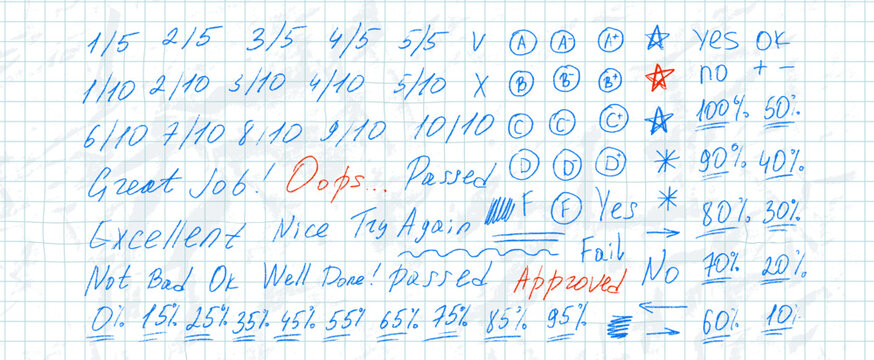 1/5 2/5 3/5 4/5 5/5 V A A- A+ yes ok
1/10 2/10 3/10 4/10 5/10 X B B- B+ no + -
6/10 7/10 8/10 9/10 10/10 C C- C+ 100% 50%
Great Job! Oops... Passed D D- D 90% 40%
Excellent Nice Try Again F F Yes 80% 30%
Fail
Not Bad Ok Well Done! passed Approved No 70% 20%
0% 15% 25% 35% 45% 55% 65% 75% 85% 95% 60% 10%